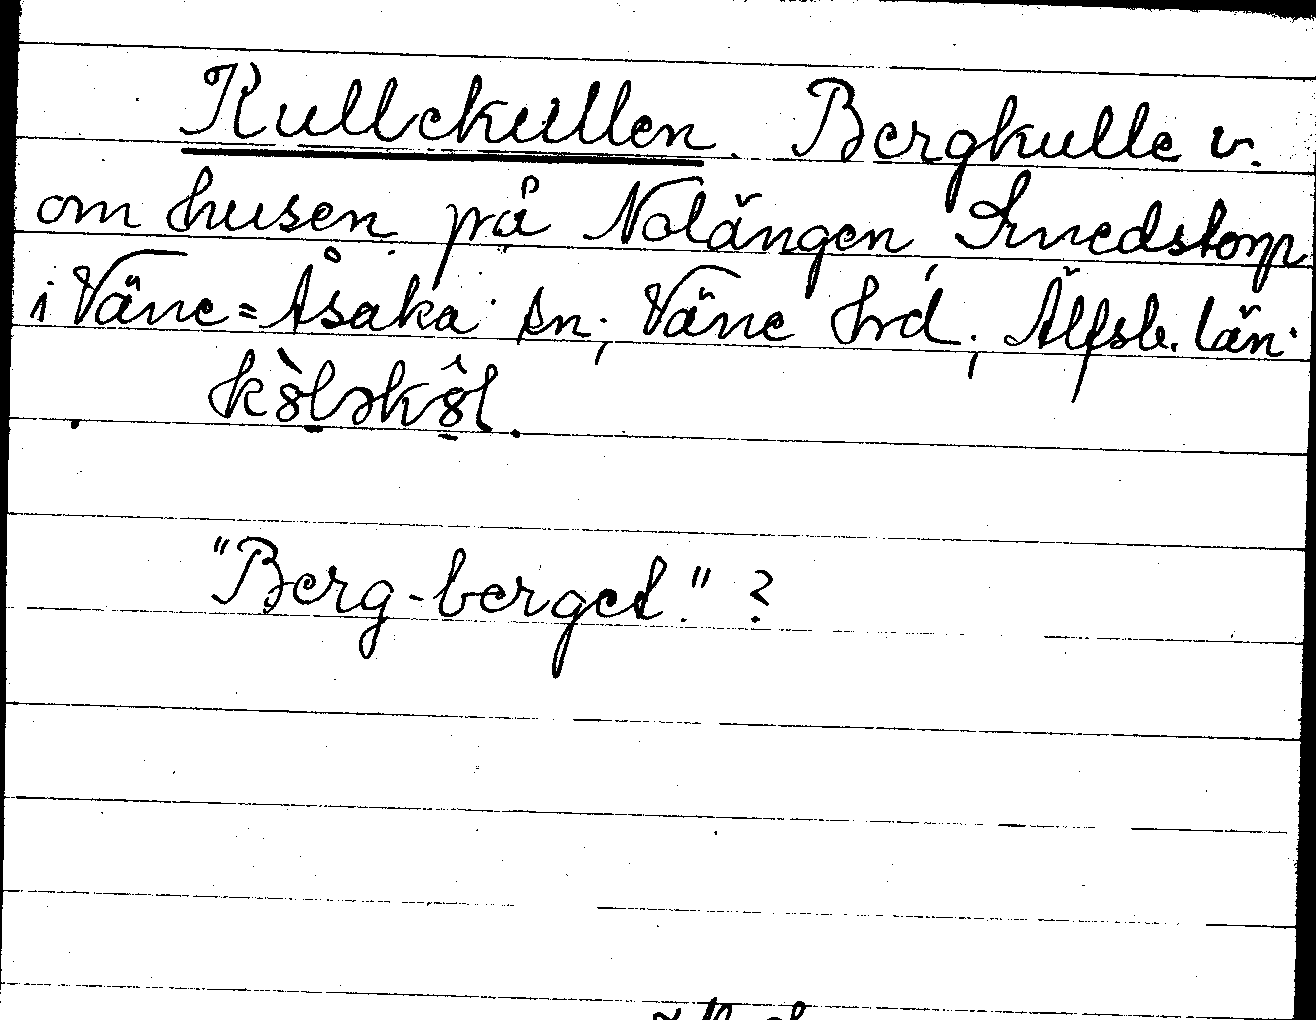 Kullekullen. Bergkulle v.
om husen på Nolängen, Smedstorp
i Väne=Åsaka sn; Väne hrd; Älfsb. län.
"Berg-berget."?